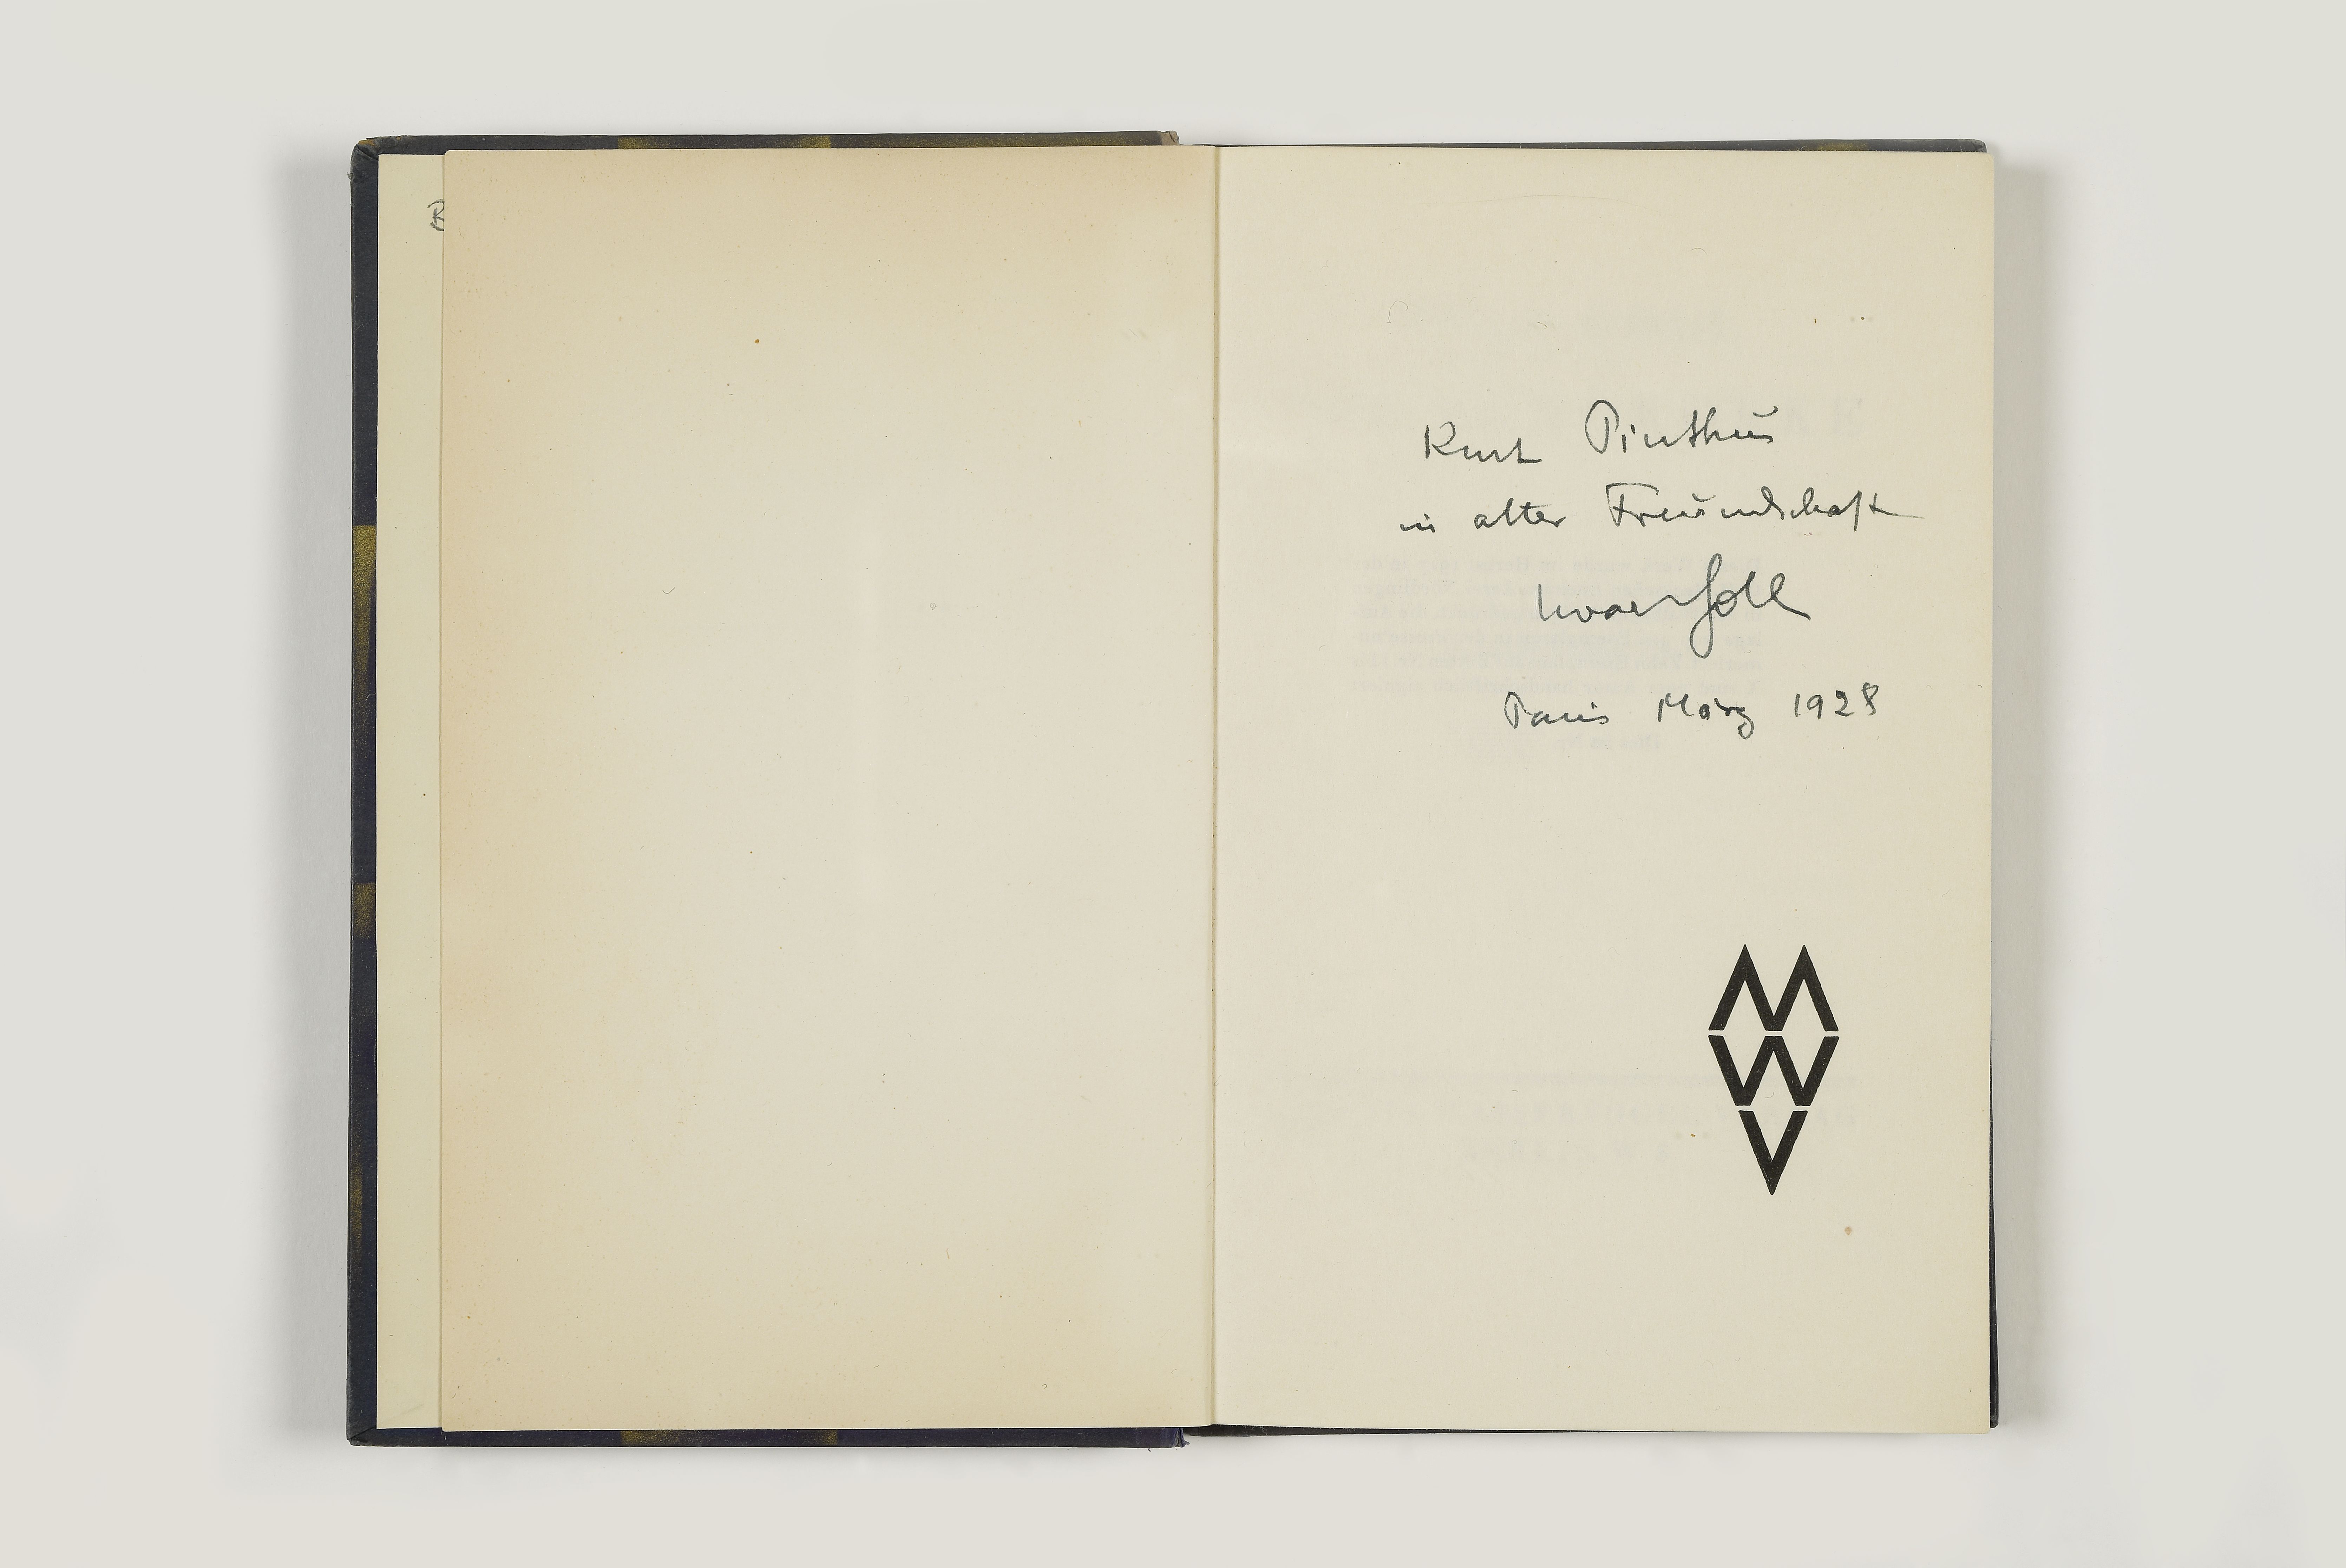 Kurt Pinthus
in alter Freundschaft
Iwan Goll
Paris März 1928
M
W
V